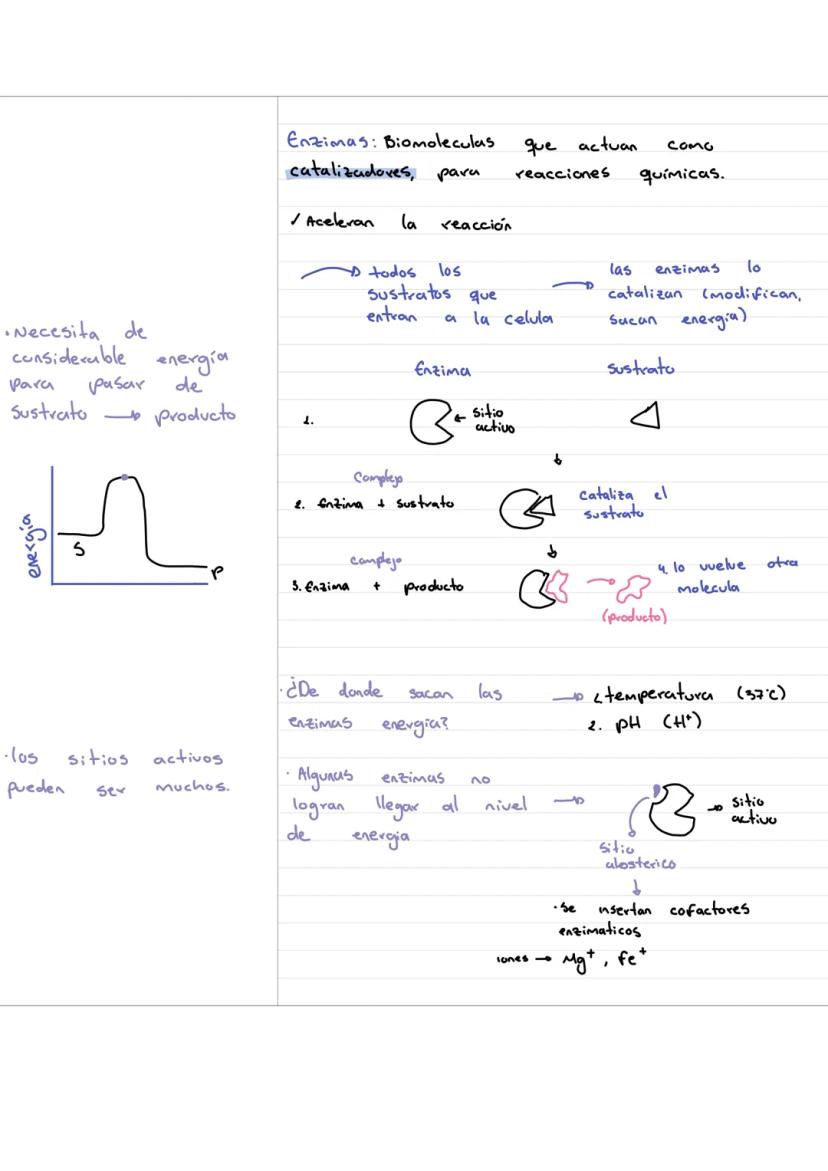 Enzimas: Biomoleculas que actuan como
catalizadores, para reacciones químicas.
✓ Aceleran la reacción
todos los
sustratos que
entran a la celula
las enzimas lo
catalizan (modifican,
sacan energía)
• Necesita de
considerable energía
para pasar de
sustrato → producto
energía
S
P
Enzima
sustrato
1.
← sitio
activo
Complejo
2. Enzima + sustrato
cataliza el
sustrato
complejo
3. Enzima + producto
4. lo vuelve otra
molecula
(producto)
• ¿De donde sacan las
enzimas energía?
→ 1. temperatura (37°C)
2. pH (H⁺)
• los sitios activos
pueden ser muchos.
• Algunas enzimas no
logran llegar al nivel
de energia
→ sitio
activo
sitio
alosterico
• se insertan cofactores
enzimaticos
iones → Mg⁺, Fe⁺